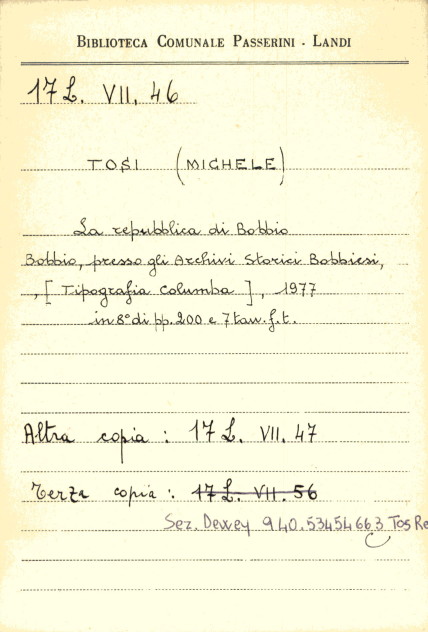 BIBLIOTECA COMUNALE PASSERINI - LANDI
17 L. VII. 46
TOSI (MICHELE)
La repubblica di Bobbio
Bobbio, presso gli Archivi Storici Bobbiesi,
, [ Tipografia Columba ] , 1977
in 8° di pp. 200 e 7 tav. f. t.
Altra copia : 17 L. VII. 47
Terza copia : 17 L. VII. 56
Sez. Dewey 940.53454663 Tos Re